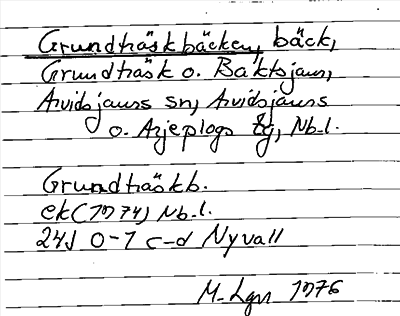 Grundträskbäcken, bäck,
Grundträsk o. Båktsjaur,
Arvidsjaurs sn, Arvidsjaurs
o. Arjeplogs tg, Nb.l.
Grundträskb.
ek (1974) Nb.l.
24J 0-1 c-d Nyvall
M. Lgn 1976